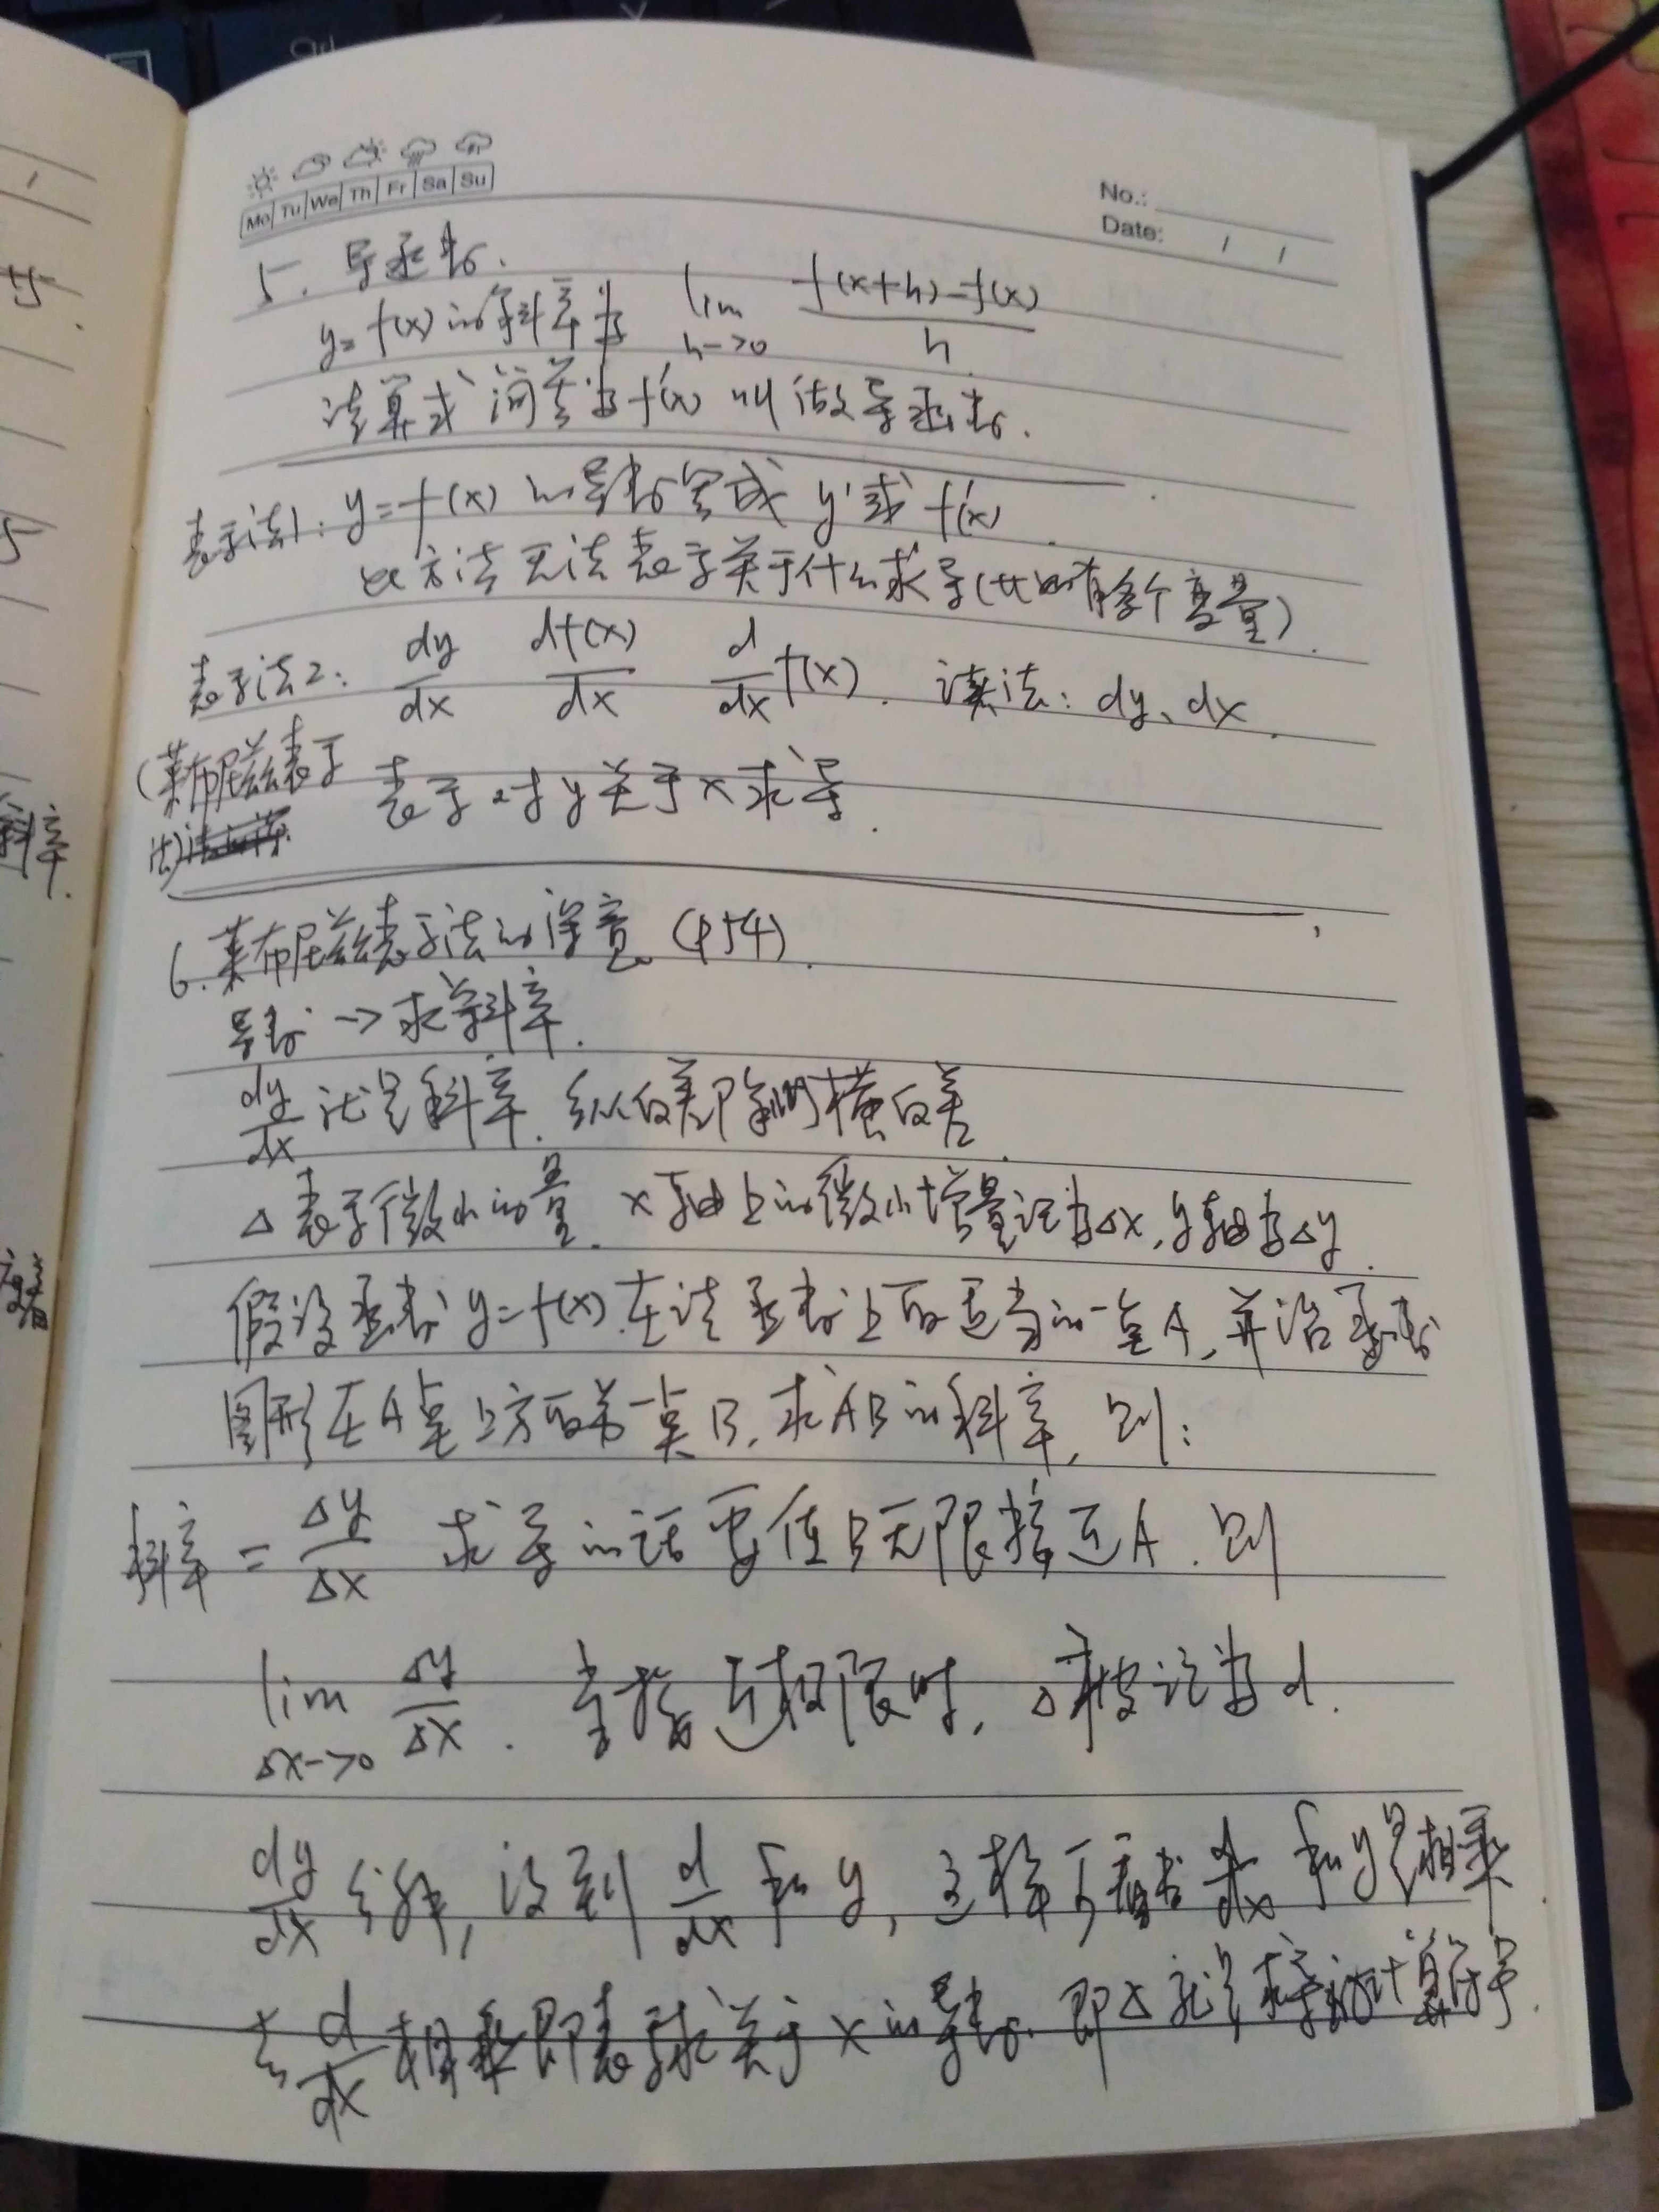 Mo Tu We Th Fr Sa Su
No.:
Date: / /
5. 导函数.
y=f(x)的斜率为 lim h->0 f(x+h)-f(x) / h
该算式简写为f'(x) 叫做导函数.
表示法1: y=f(x)的导数写成 y'或 f'(x).
此方法无法表示关于什么求导(比如有多个变量).
表示法2: dy/dx df(x)/dx d/dx f(x). 读法: dy、dx.
(莱布尼兹表示法)
表示对y关于x求导.
6. 莱布尼兹表示法的深意 (P54).
导数->求斜率.
dy/dx 就是斜率. 纵向差即除以横向差.
Δ表示微小的量. x轴上的微小增量记为Δx, y轴为Δy.
假设函数y=f(x).在该函数上取适当的一点A,并沿函数
图形在A点上方取另一点B,求AB的斜率,则:
斜率 = Δy/Δx 求导的话要使B无限接近A. 则
lim Δx->0 Δy/Δx. 当接近极限时, Δ被记为d.
dy/dx 分解, 得到 d/dx 和 y, 这样可看出 d/dx 和y是相乘.
与 d/dx 相乘即表示求关于x的导数. 即Δ就是求导的计算符号.
15.
5
斜率.